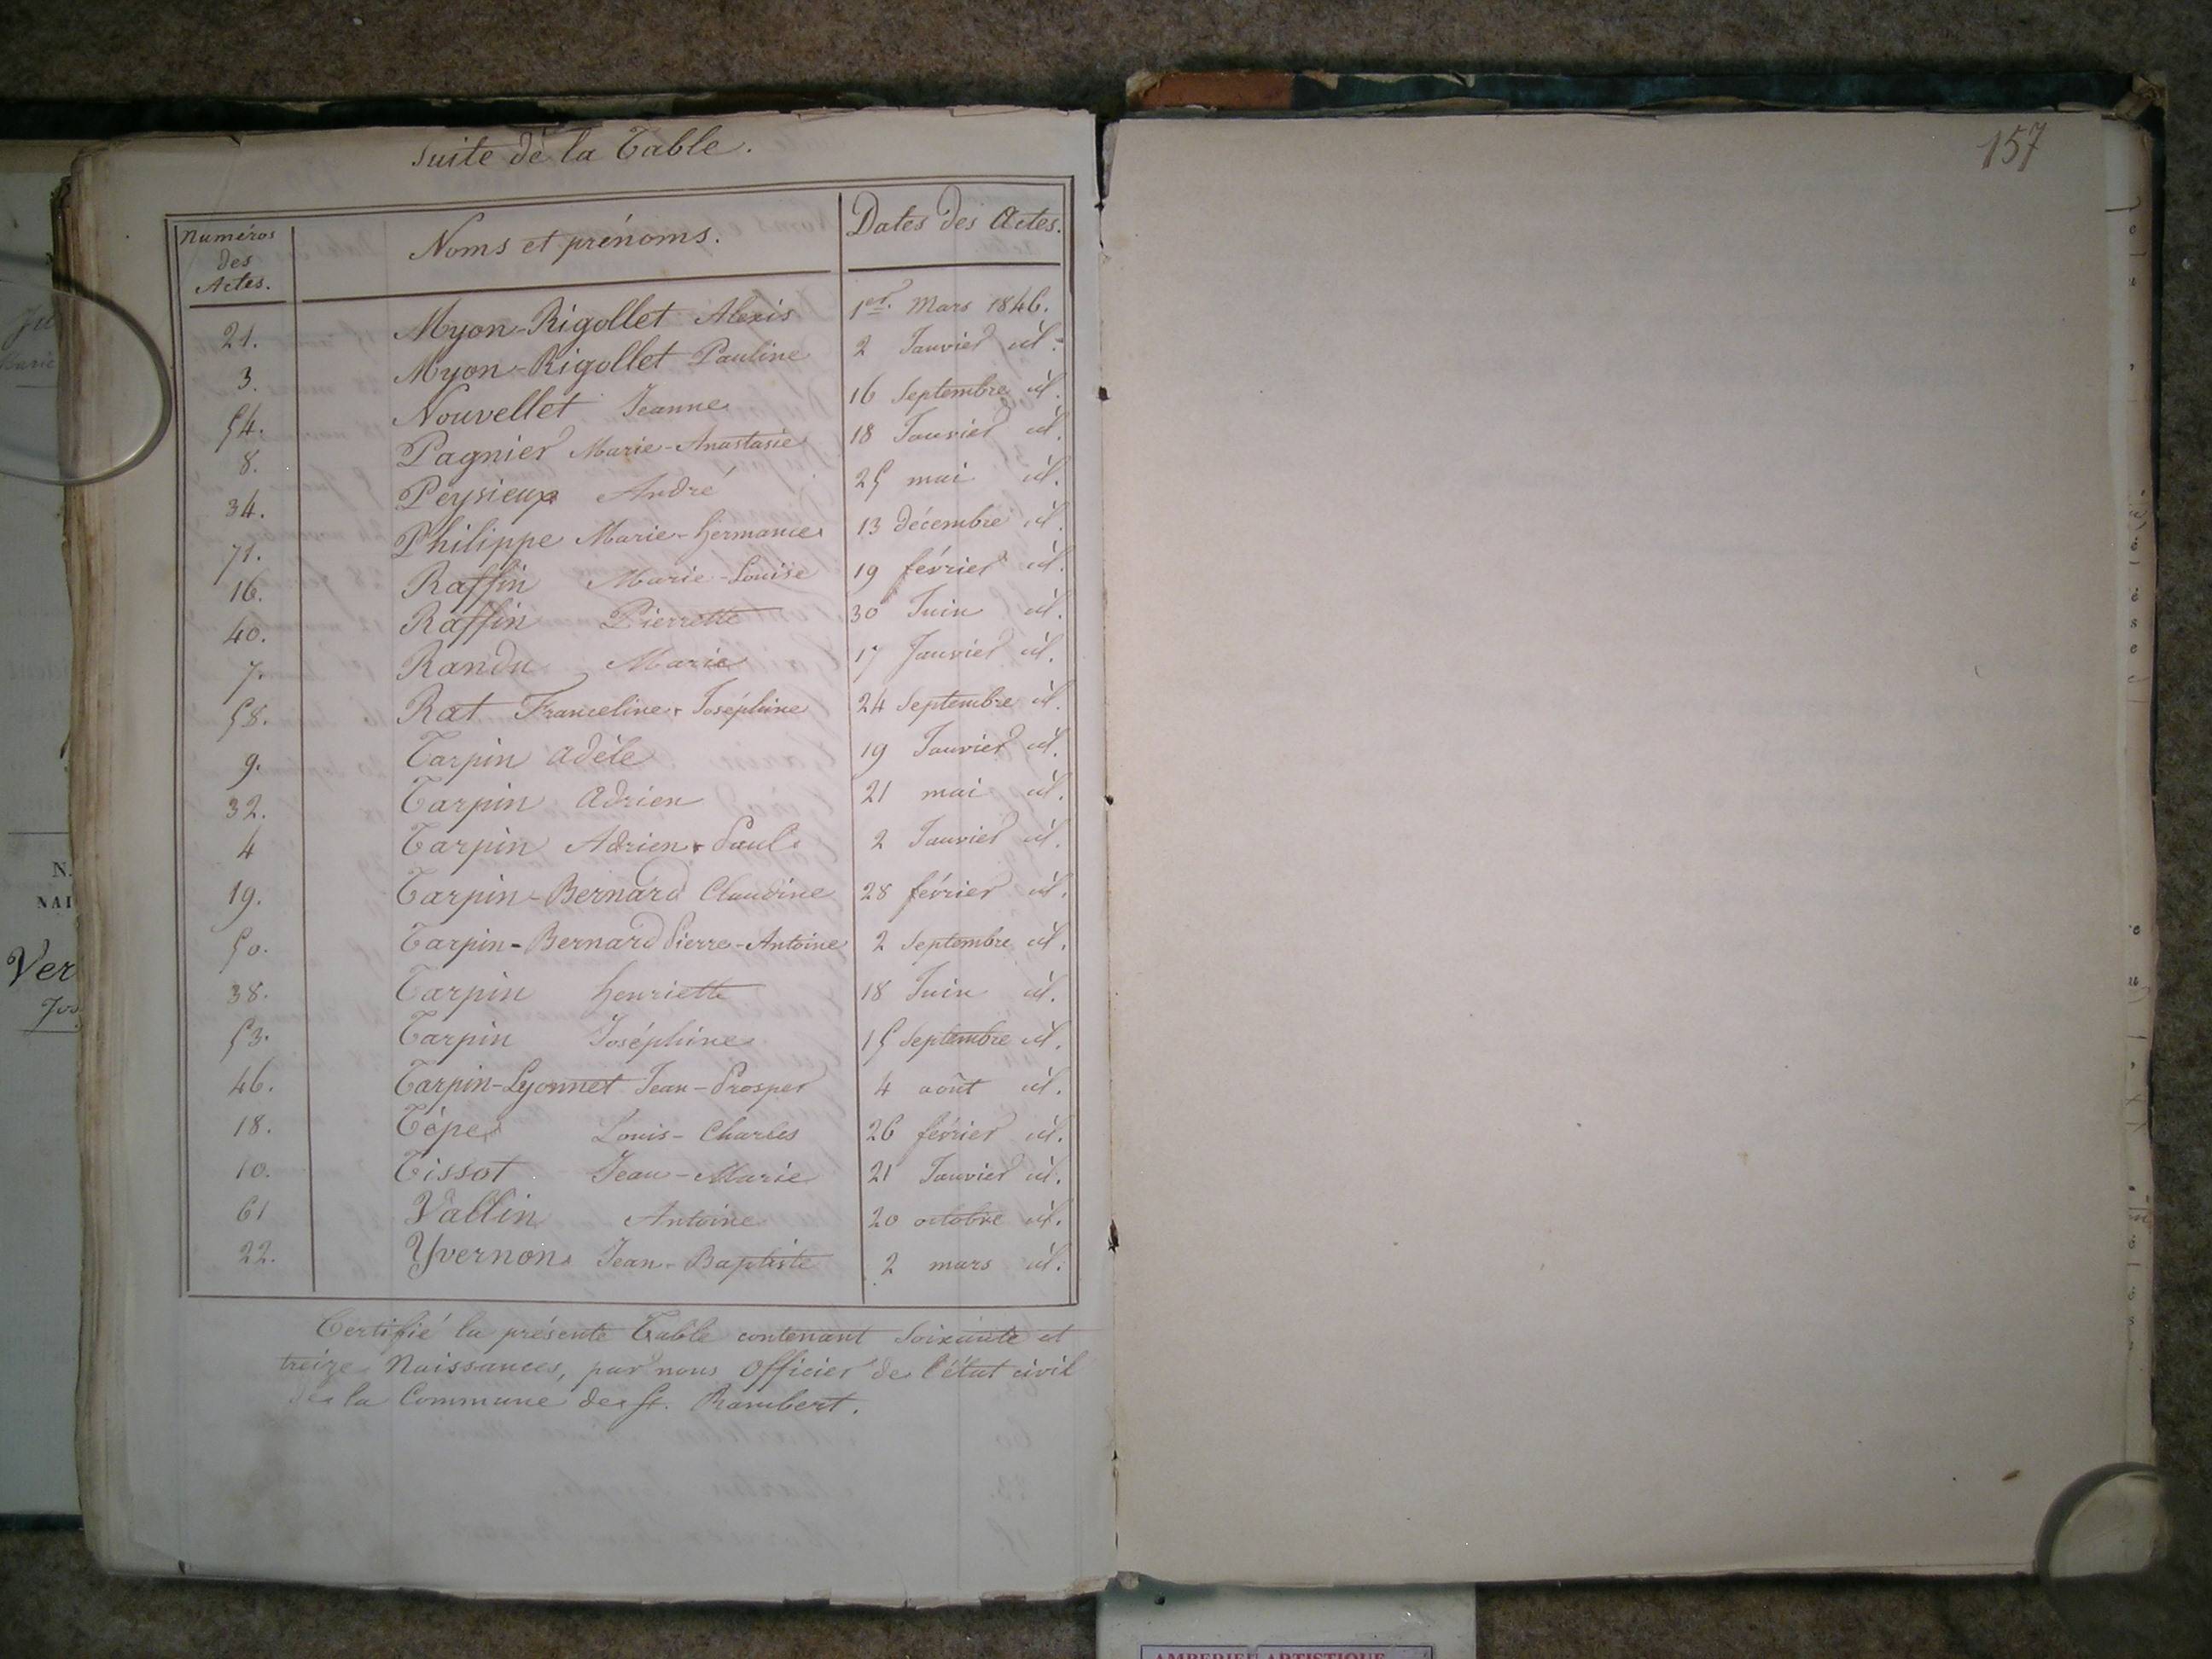 Suite de la Table.
157
Numéros des Actes. Noms et prénoms. Dates des Actes.
21. Myon-Rigollet Alexis 1er. Mars 1846.
3. Myon-Rigollet Pauline 2 Janvier id.
54. Nouvellet Jeanne 16 Septembre id.
8. Pagnier Marie-Anastasie 18 Janvier id.
34. Peysieux André 25 mai id.
71. Philippe Marie-hermance 13 décembre id.
16. Raffin Marie-Louise 19 février id.
40. Raffin Pierrette 30 Juin id.
7. Randu Marie 17 Janvier id.
58. Rat Franceline-Joséphine 24 Septembre id.
9. Tarpin adèle 19 Janvier id.
32. Tarpin adrien 21 mai id.
4 Tarpin Adrien-Paul 2 Janvier id.
19. Tarpin-Bernard Claudine 28 février id.
50. Tarpin-Bernard Pierre-Antoine 2 Septembre id.
38. Tarpin henriette 18 Juin id.
53. Tarpin Joséphine 15 Septembre id.
46. Tarpin-Lyonnet Jean-Prosper 4 août id.
18. Tépe Louis-Charles 26 février id.
10. Tissot Jean-Marie 21 Janvier id.
61 Vallin Antoine 20 octobre id.
22. Yvernon Jean-Baptiste 2 mars id.
Certifié la présente Table contenant Soixante et
treize Naissances, par nous Officier de l'état civil
de la Commune de St. Rambert.
Ver
AMBERIEU ARTISTIQUE